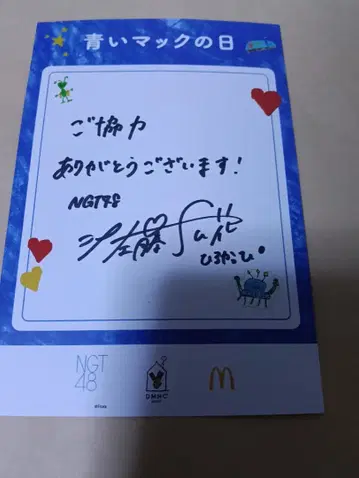 青いマックの日
ご協力
ありがとうございます!
NGT48
佐藤
NGT
48
DMHC